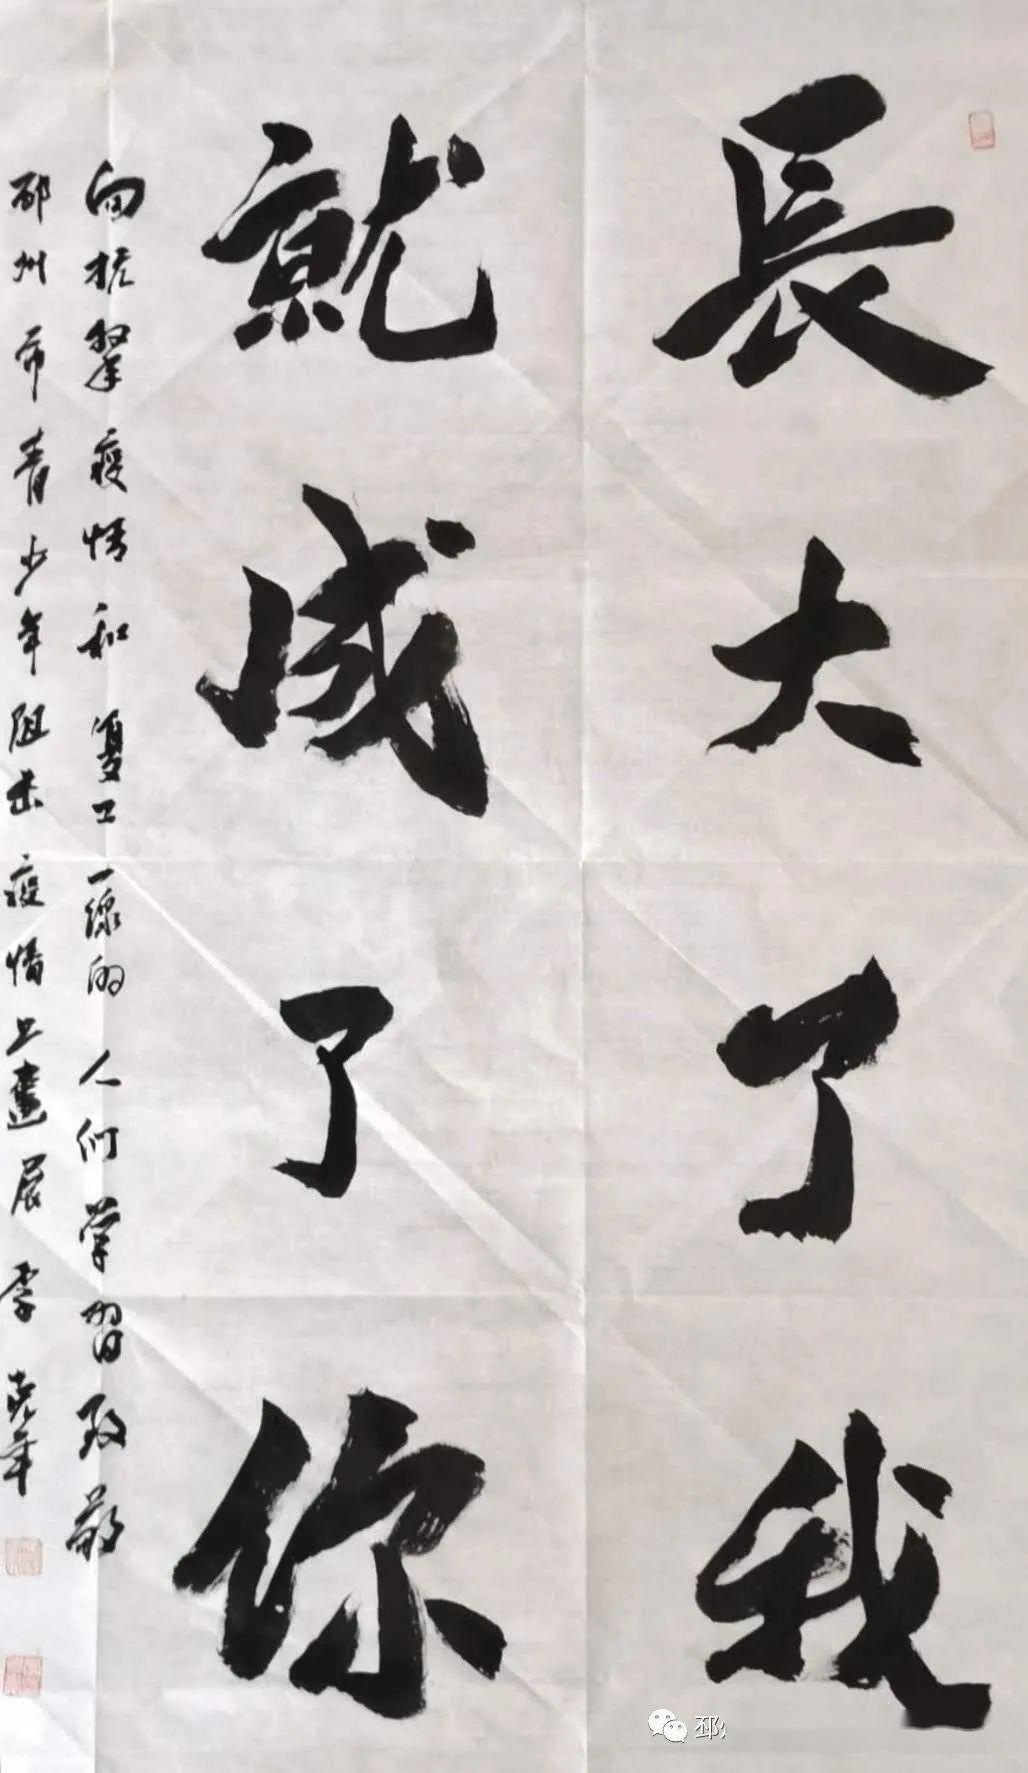 長大了我
就成了你
向抗擊疫情和復工一線的人们学習致敬
邳州市青少年阻击疫情书畫展 李
邳